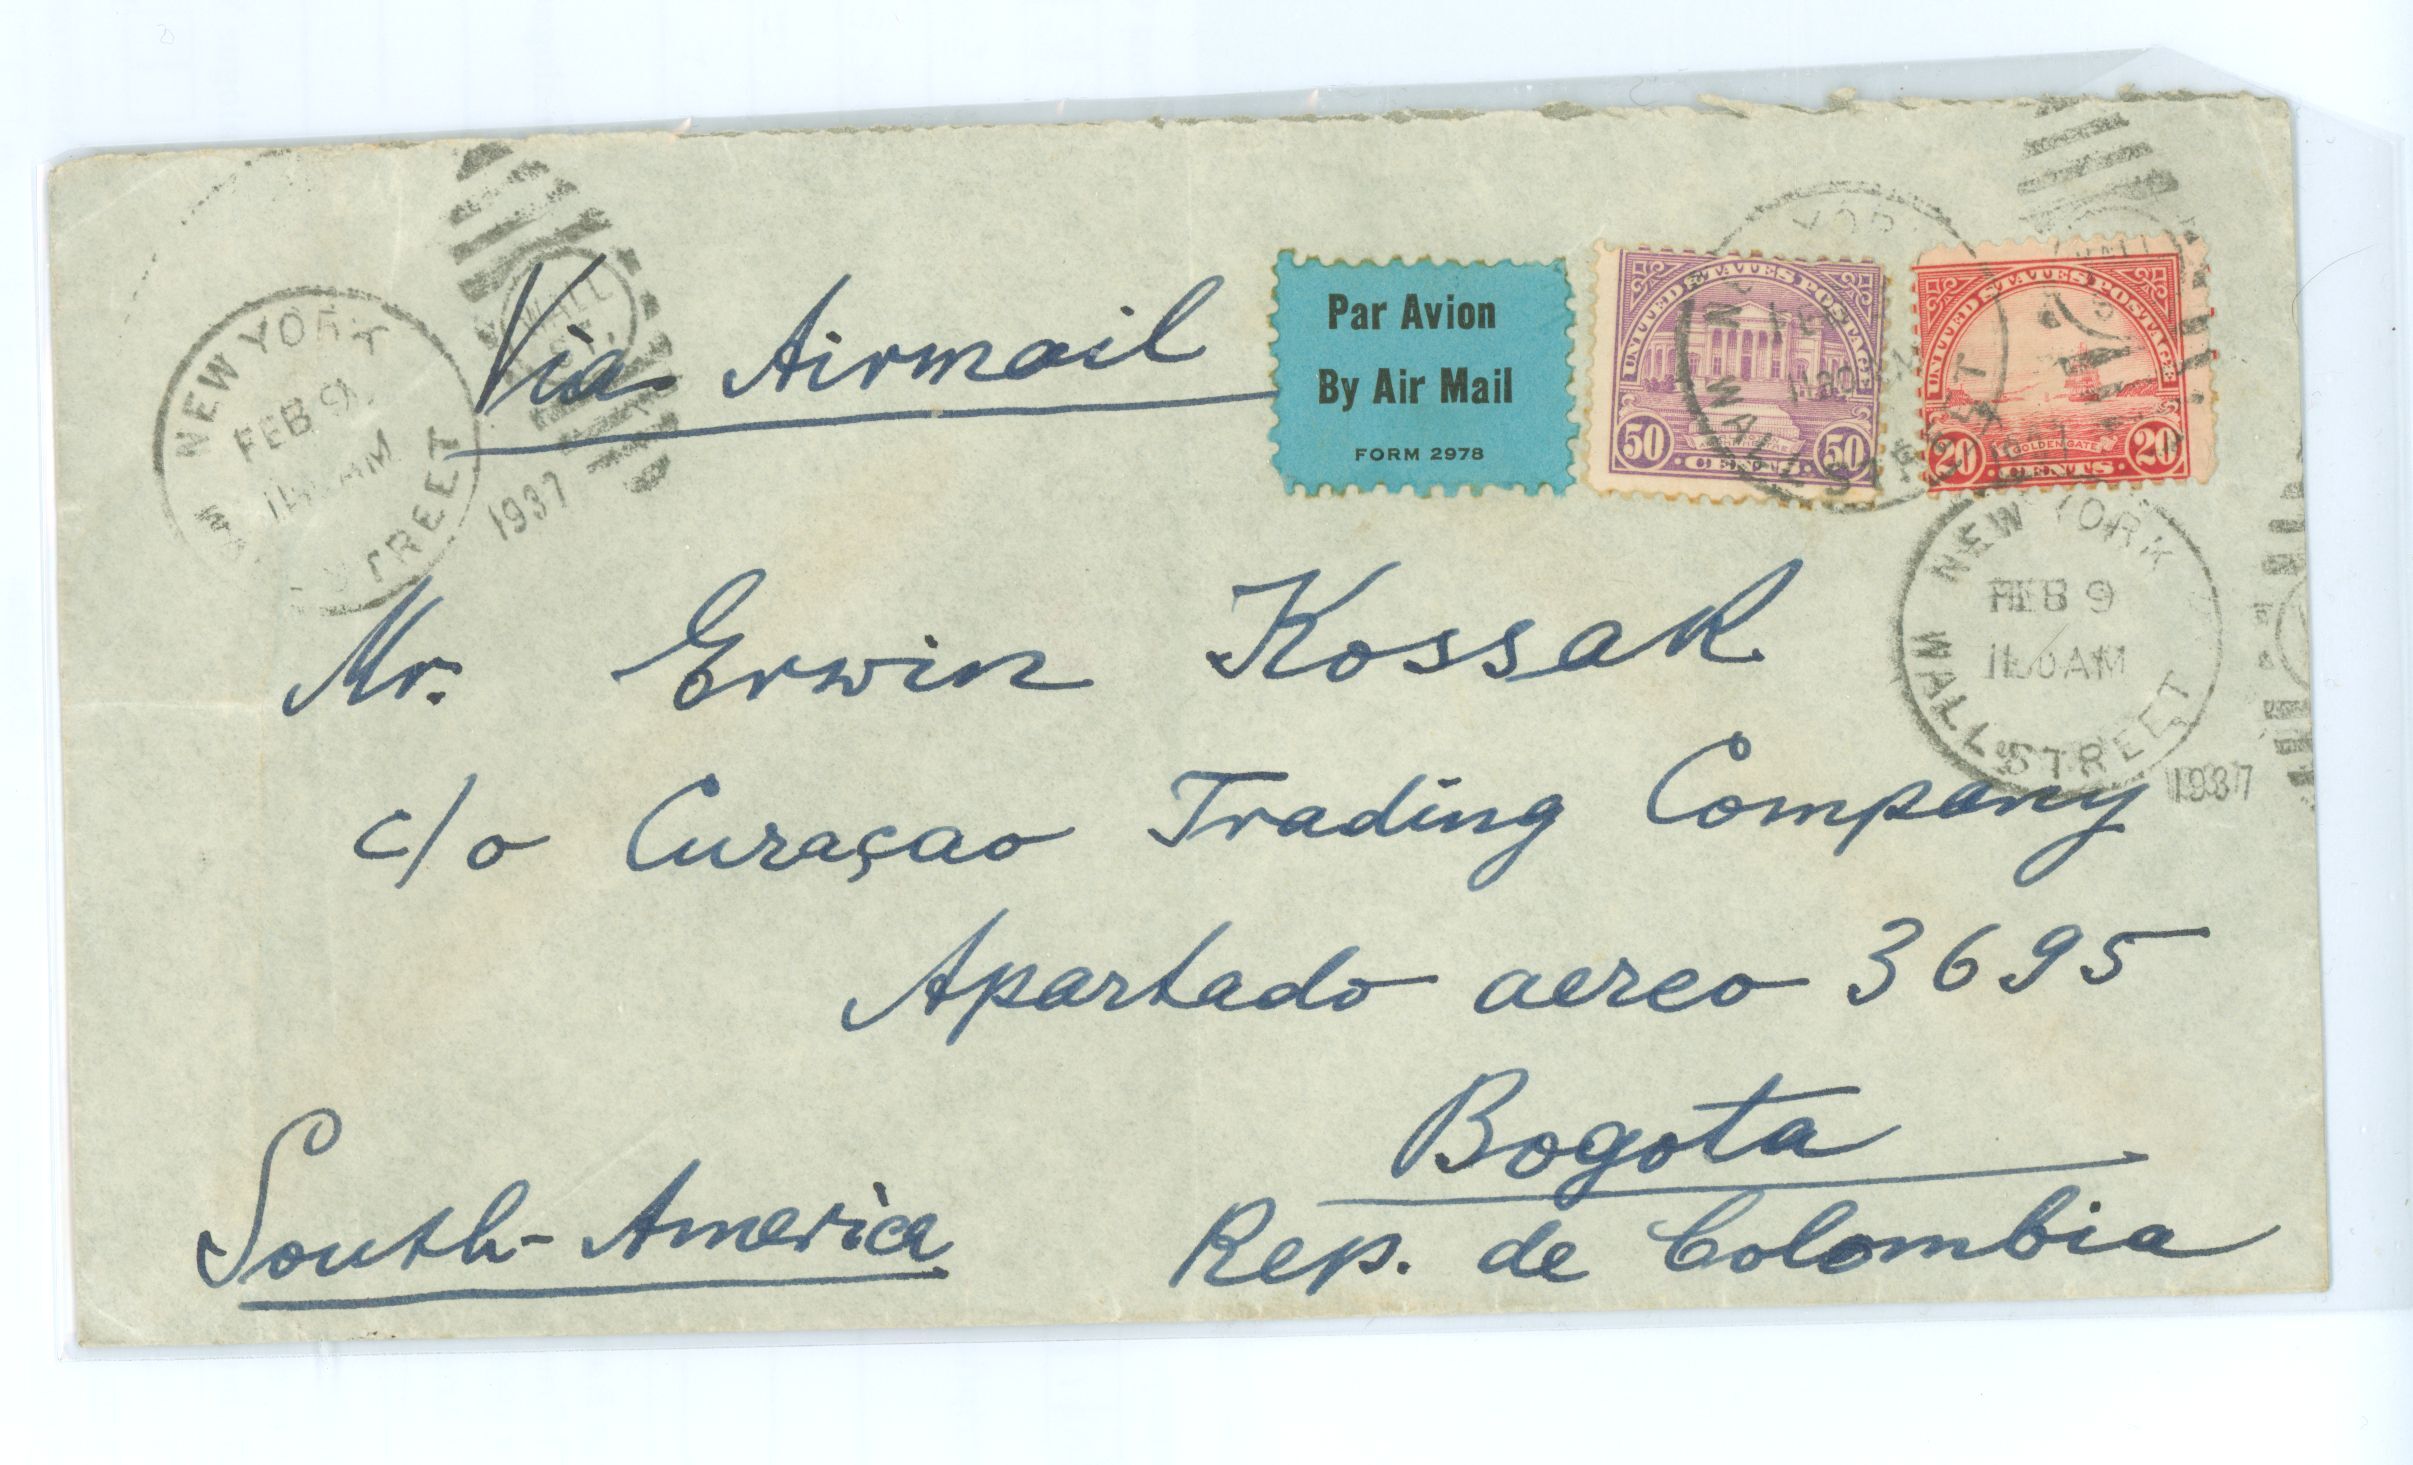 NEW YORK
FEB 9
AM
STREET
WALL
ST.
1937
Via Airmail
Par Avion
By Air Mail
FORM 2978
UNITED STATES POSTAGE
50 50
CENTS
UNITED STATES POSTAGE
GOLDEN GATE
20 CENTS 20
YORK
WALL STREET
NEW YORK
FEB 9
AM
WALL STREET
1937
Mr. Erwin Kossak
c/o Curaçao Trading Company
Apartado aereo 3695
Bogota
South-America
Rep. de Colombia